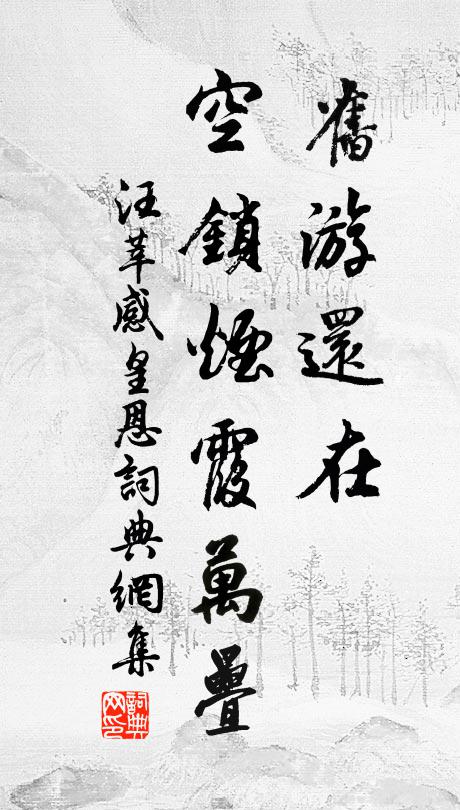 舊游還在
空鎖煙霞萬疊
汪莘感皇恩詞典網集
詞典
网印